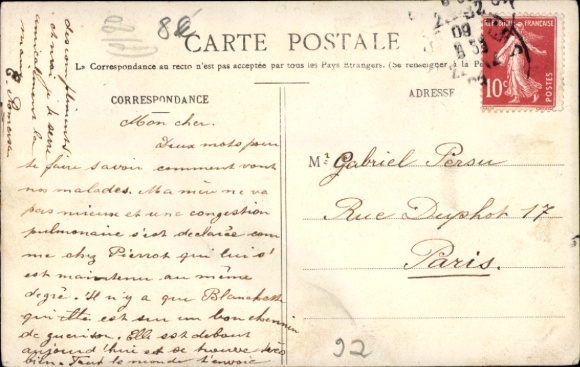 8€
CARTE POSTALE
La Correspondance au recto n'est pas acceptée par tous les Pays Etrangers. (Se renseigner à la Po
CORRESPONDANCE
ADRESSE
RÉPUBLIQUE FRANÇAISE
10c
POSTES
09
Mon cher.
Deux mots pour
te faire savoir comment vont
nos malades. Ma mère ne va
pas mieux et une congestion
pulmonaire s'est déclarée com
me chez Pierrot qui lui s'
est maintenu au même
degré. Il n'y a que Blanchette
qui elle est sur un bon chemin
de guérison. Elle est debout
aujourd'hui et se trouve très
bien. Tout le monde t'envoie
des compliments
et moi je te serre
amicalement la
main
Mr Gabriel Persu
Rue Duphot 17
Paris.
92